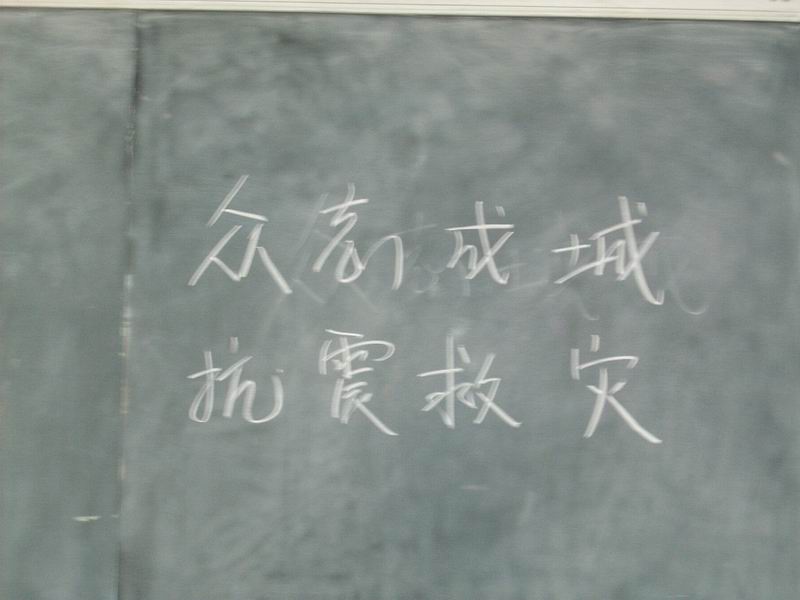 众志成城
抗震救灾